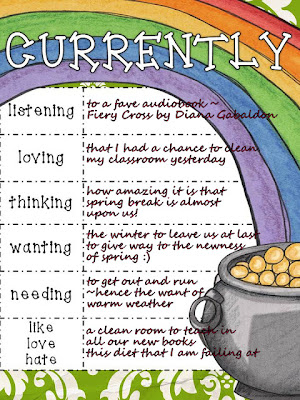 CURRENTLY
listening
to a fave audiobook ~
Fiery Cross by Diana Gabaldon
loving
that I had a chance to clean
my classroom yesterday
thinking
how amazing it is that
spring break is almost
upon us!
wanting
the winter to leave us at last
to give way to the newness
of spring :)
needing
to get out and run
~hence the want of
warm weather
like
love
hate
a clean room to teach in
all our new books
this diet that I am failing at